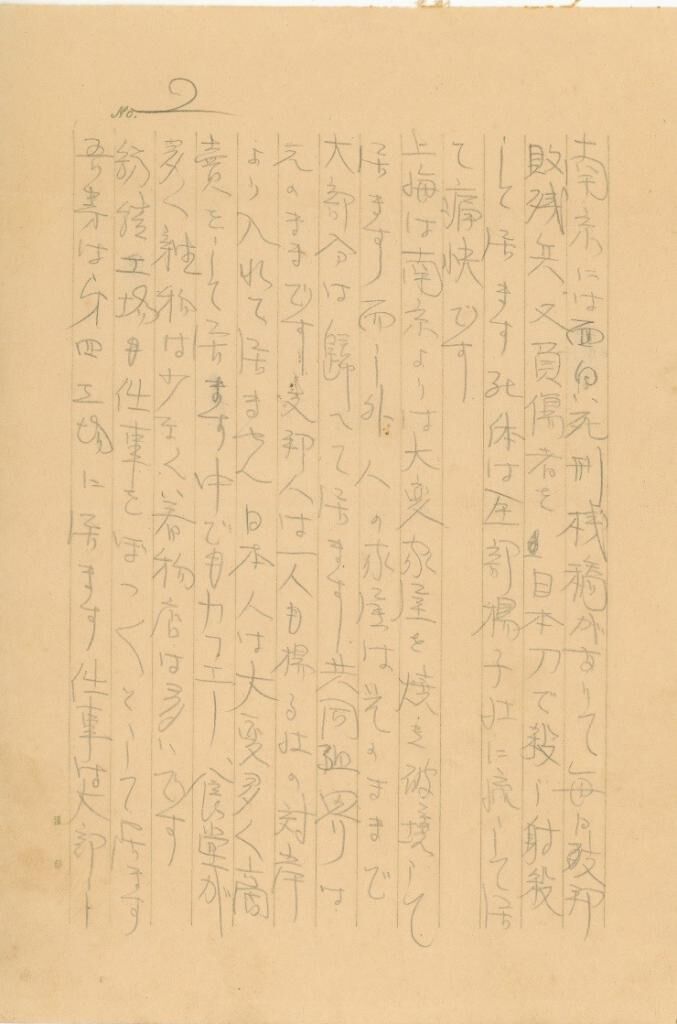 No. 2
南京には面白い死刑桟橋がありて毎日支那
敗残兵又負傷者を日本刀で殺し射殺
して居ます死体は全部揚子江に流して居
て痛快です
上海は南京よりは大変家屋を焼き破壊して
居ます而し外人の家屋は元のままで
大部分は歸へて居ます共同租界は
元のままです支那人は一人も揚子江の対岸
より入れて居ません日本人は大変多く商
賣をして居ます中でもカフエー、食堂が
多く雑物は少なく着物店は多いです
紡績工場も仕事をぼつ〱として居ます
吾等は第四工場に居ます仕事は大部